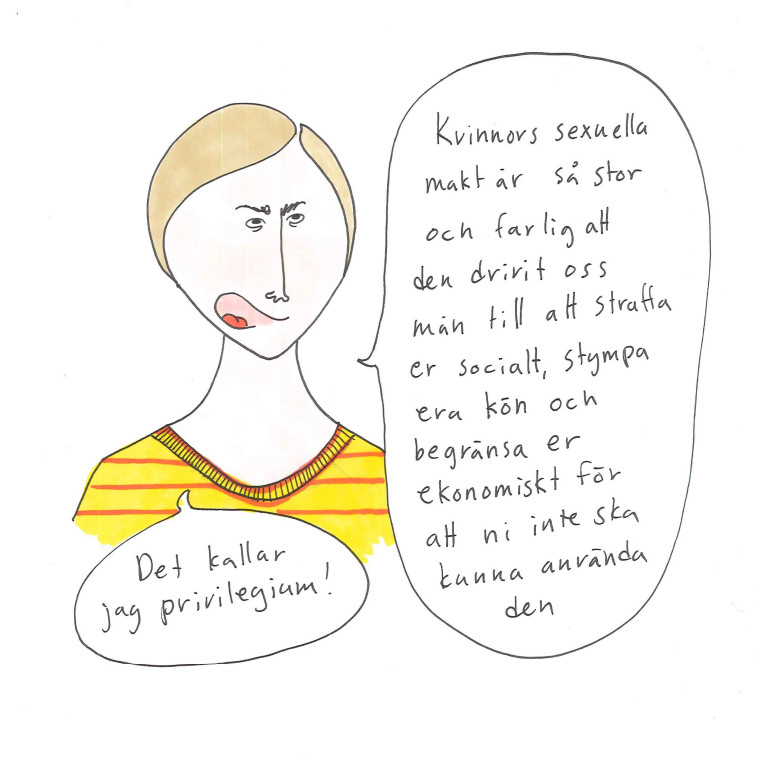 Kvinnors sexuella
makt är så stor
och farlig att
den drivit oss
män till att straffa
er socialt, stympa
era kön och
begränsa er
ekonomiskt för
att ni inte ska
kunna använda
den
Det kallar
jag privilegium!